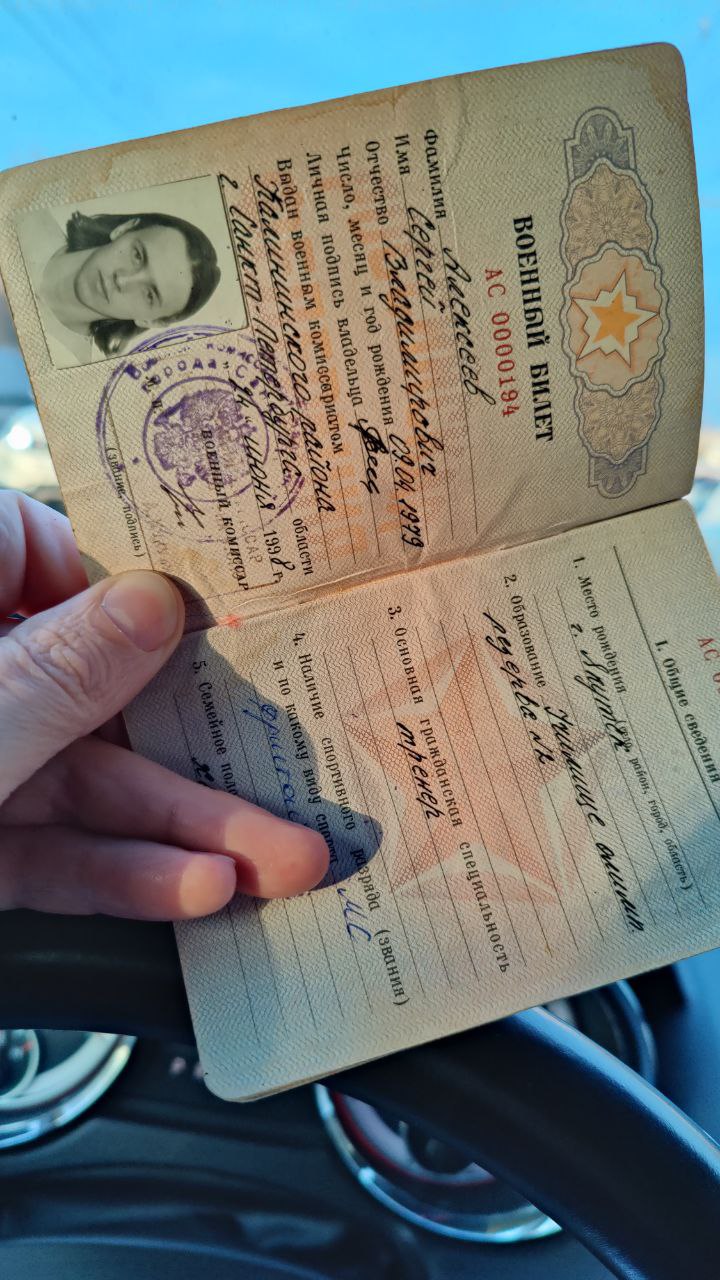 ВОЕННЫЙ БИЛЕТ
АС 0000194
Фамилия Алексеев
Имя Сергей
Отчество Владимирович
Число, месяц и год рождения 09.04.1979
Личная подпись владельца
Выдан военным комиссариатом
Калининского района
г. Санкт-Петербург области
июня 1998 г.
ВОЕННЫЙ КОМИССАР
(звание, подпись)
АС 0
1. Общие сведения
1. Место рождения г. Якутск
район, город, область)
2. Образование Училище олимп.
резерва №2
3. Основная гражданская специальность
тренер
4. Наличие спортивного разряда (звания)
и по какому виду спорта МС
5. Семейное поло